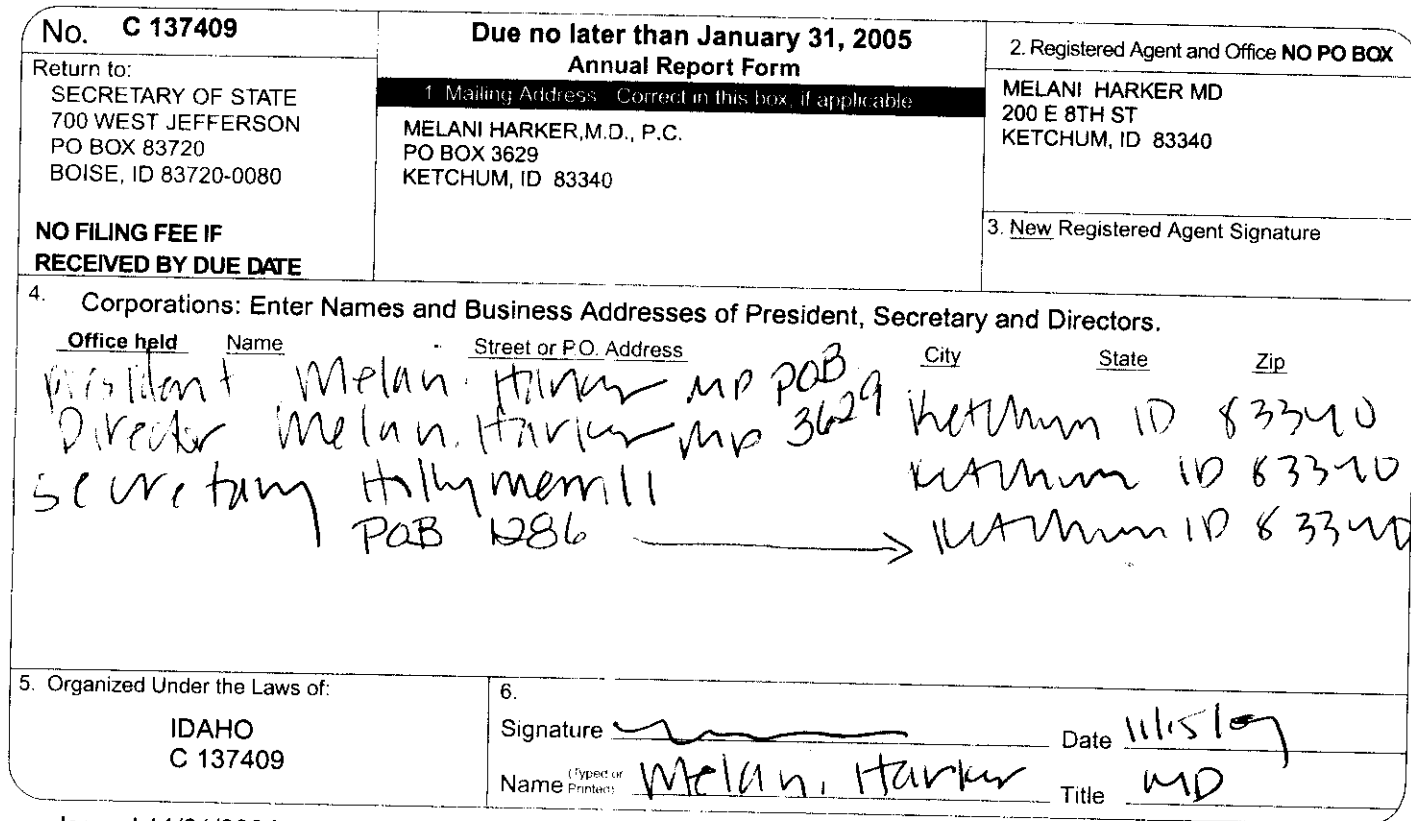 No. C 137409
Return to:
SECRETARY OF STATE
700 WEST JEFFERSON
PO BOX 83720
BOISE, ID 83720-0080
NO FILING FEE IF
RECEIVED BY DUE DATE
Due no later than January 31, 2005
Annual Report Form
1. Mailing Address Correct in this box, if applicable
MELANI HARKER,M.D., P.C.
PO BOX 3629
KETCHUM, ID 83340
2. Registered Agent and Office NO PO BOX
MELANI HARKER MD
200 E 8TH ST
KETCHUM, ID 83340
3. New Registered Agent Signature
4. Corporations: Enter Names and Business Addresses of President, Secretary and Directors.
Office held Name Street or P.O. Address City State Zip
President Melani Harker MD POB
Director Melani Harker MD 3629 Ketchum ID 83340
Secretary Holly Merrill Ketchum ID 83340
POB 1286 Ketchum ID 83340
5. Organized Under the Laws of:
IDAHO
C 137409
6.
Signature Date
Name (Typed or Printed) Melani Harker Title MD